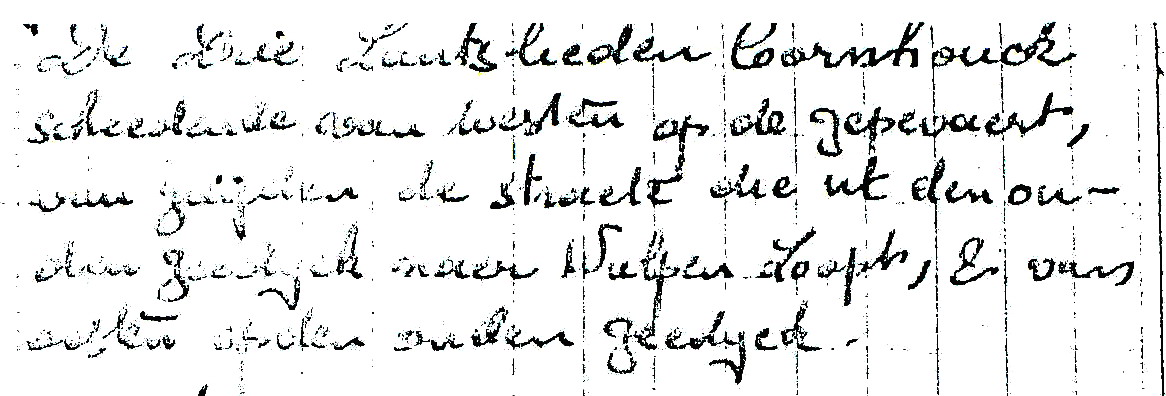 "De Drie Lantslieden Coornhouck
scheedende van westen op de gepevaert,
van zuijden de straete die ut den ou-
den zeedyck naer Wulpen Loopt, & van
oosten opden ouden zeedyck.